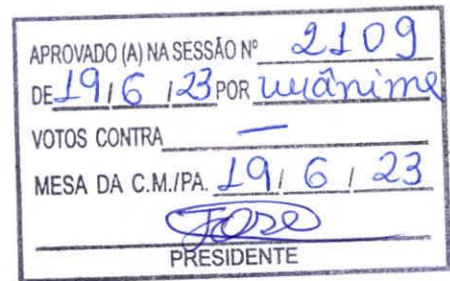 APROVADO (A) NA SESSÃO Nº 2109
DE 19 / 6 / 23 POR unânime
VOTOS CONTRA —
MESA DA C.M./PA. 19 / 6 / 23
PRESIDENTE